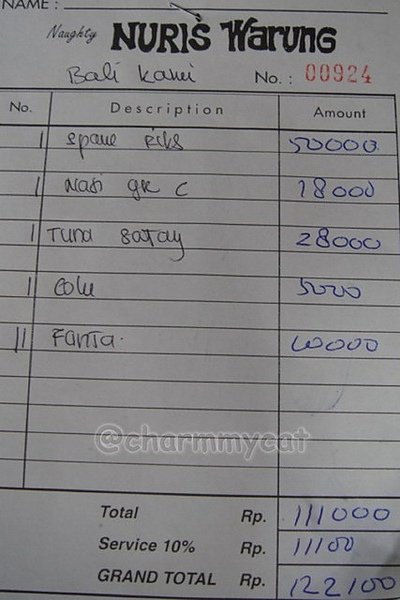 NAME :
Naughty NURIS Warung
Bali Kawi No. : 00924
No. Description Amount
1 Spare Ribs 50000
1 Nasi gr C 18000
1 Tuna Satay 28000
1 Coke 5000
11 Fanta. 10000
@charmmycat
Total Rp. 111000
Service 10% Rp. 11100
GRAND TOTAL Rp. 122100